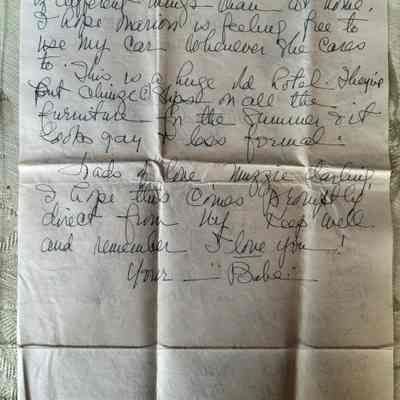 of different things than at home.
I hope Marion is feeling free to
use my car whenever she cares
to. This is a huge old hotel. They've
put chintz slips on all the
furniture for the summer & it
looks gay & less formal.
Loads of love Muzzie darling.
I hope this comes promptly
direct from NY. Keep well
and remember I love you!
Your "Babe"